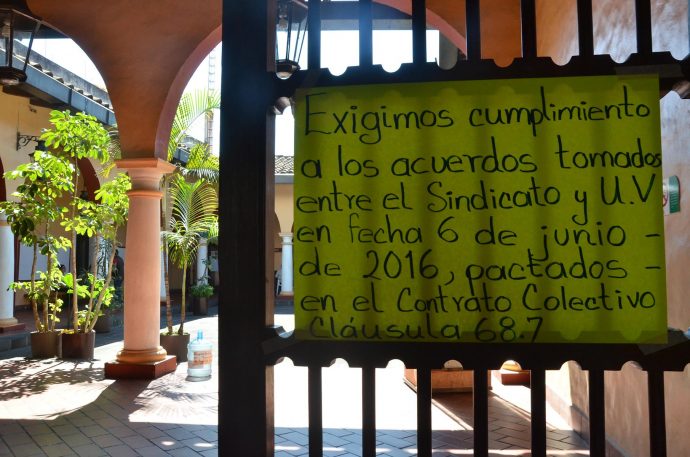 Exigimos cumplimiento
a los acuerdos tomados
entre el Sindicato y U.V
en fecha 6 de junio -
de 2016, pactados -
en el Contrato Colectivo
Cláusula 68.7